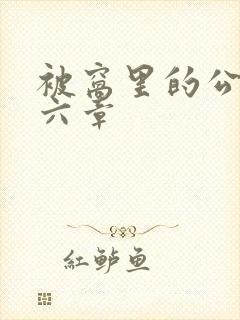 被窝里的公
六章
紅鲈鱼